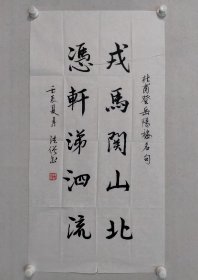 杜甫登岳陽樓名句
戎馬関山北
憑軒涕泗流
壬辰夏月